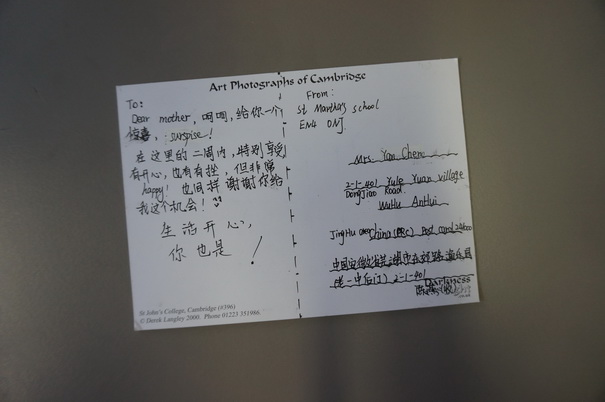 Art Photographs of Cambridge
To:
Dear mother, 呵呵, 给你一个
惊喜, suspise!
在这里的二周内, 特别享受
有开心, 也有有挫, 但非常
happy! 也同样谢谢你给
我这个机会!
生活开心,
你也是!
From:
St Martha's school
EN4 0NJ.
Mrs. Yan Chen
2-1-401 Yule Yuan village
Dongjiao Road.
WuHu AnHui
JingHu China (PRC) Post card
中国安徽省芜湖市
一中后门) 2-1-401
Darkness
St John's College, Cambridge (#396)
© Derek Langley 2000. Phone 01223 351986.